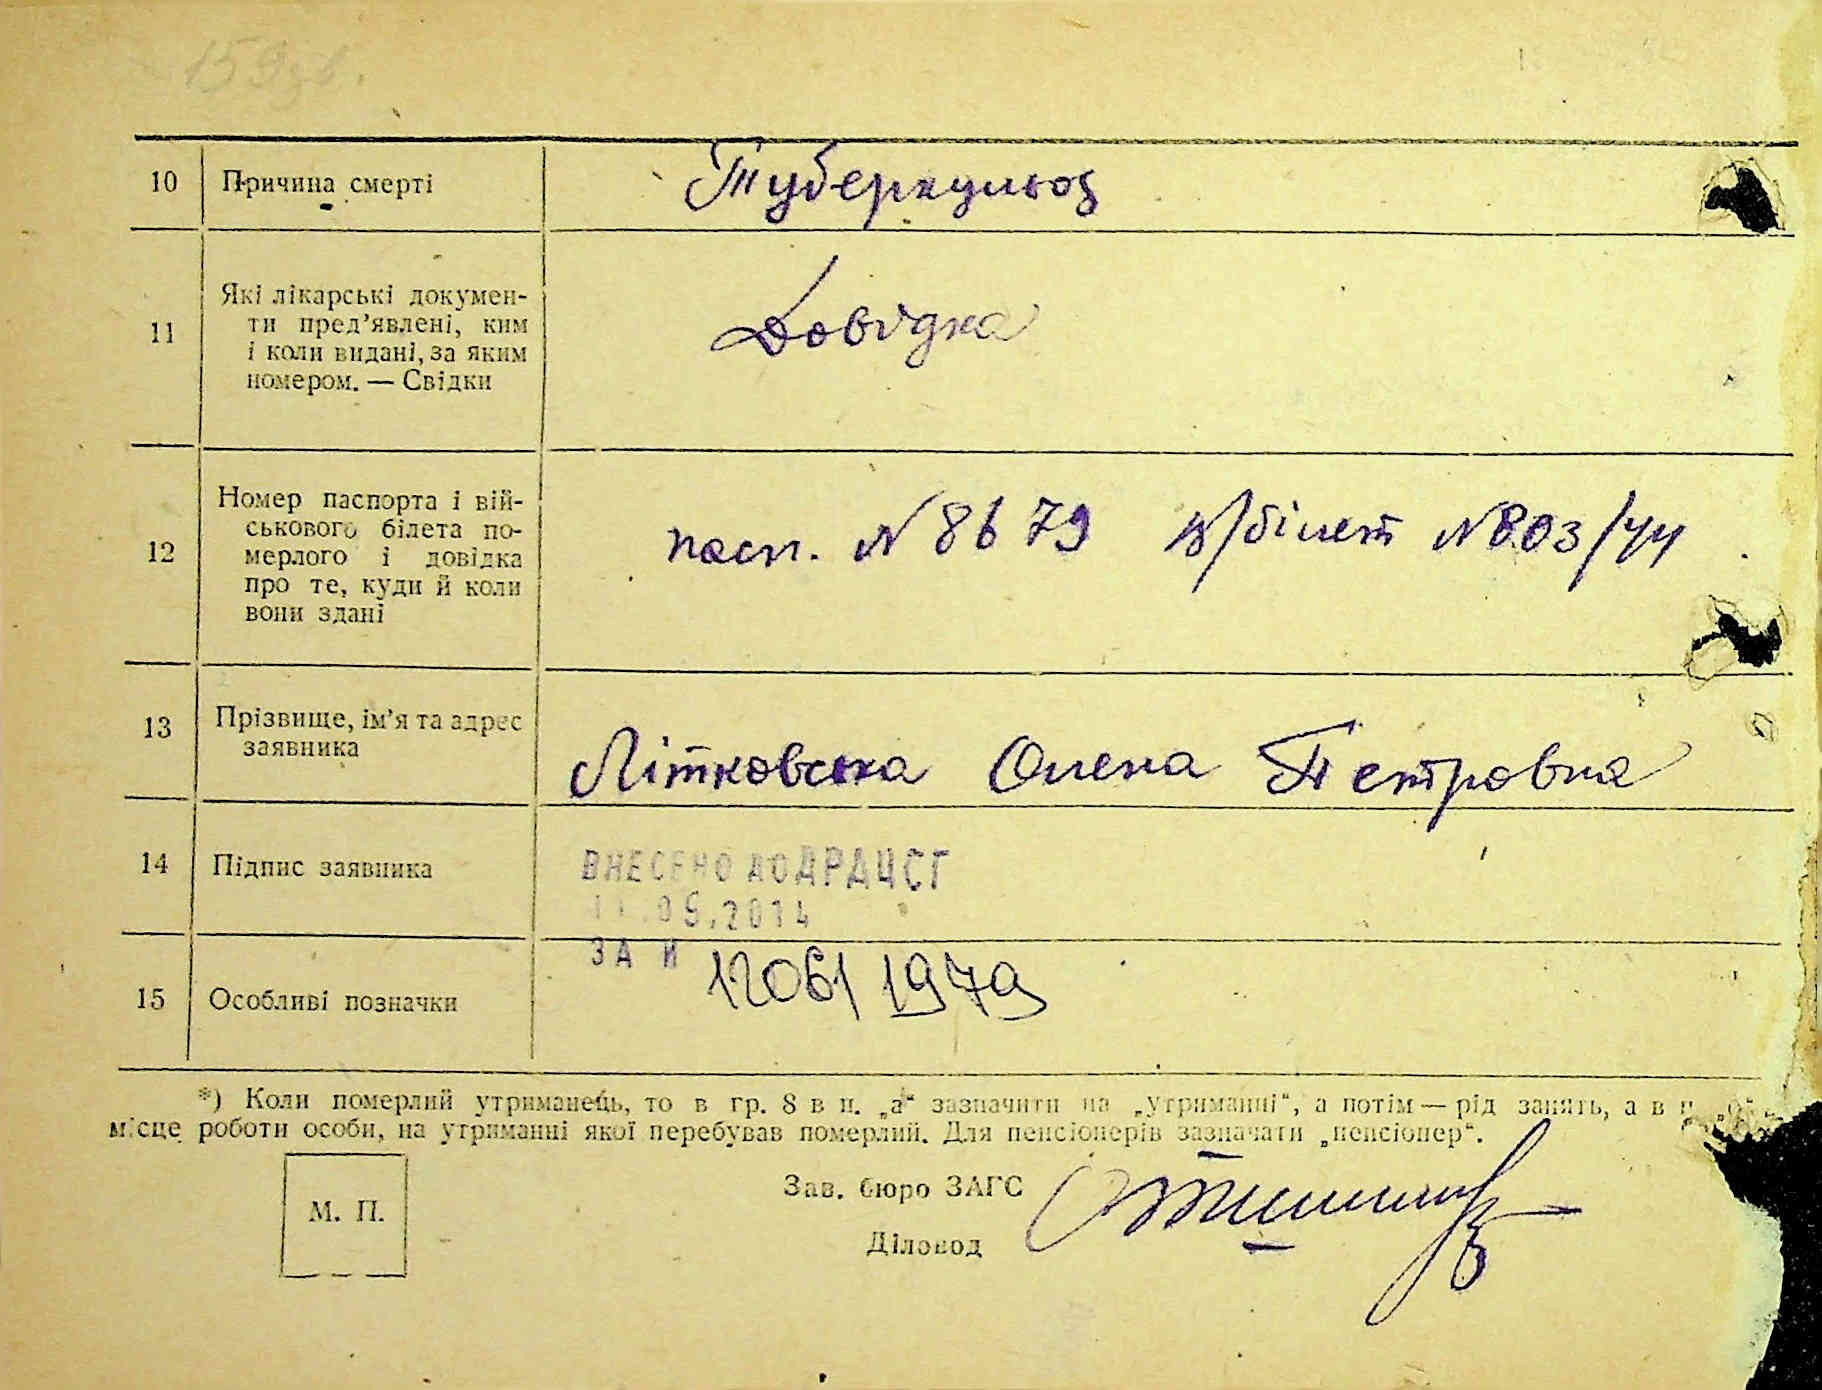 159зв.
10 Причина смерті Туберкульоз
11 Які лікарські докумен-
ти пред’явлені, ким
і коли видані, за яким
номером. — Свідки
Довідка
12 Номер паспорта і вій-
ськового білета по-
мерлого і довідка
про те, куди й коли
вони здані
пасп. N 8679 в/білет N803/44
13 Прізвище, ім’я та адрес
заявника
Літковська Олена Петровна
14 Підпис заявника
ВНЕСЕНО ДО ДРАЦСГ
.09.2014
ЗА И 12061 1979
15 Особливі позначки
*) Коли померлий утриманець, то в гр. 8 в п. „а“ зазначити на „утриманні“, а потім — рід занять, а в п.
місце роботи особи, на утриманні якої перебував померлий. Для пенсіонерів зазначати „пенсіонер“.
М. П.
Зав. бюро ЗАГС
Діловод